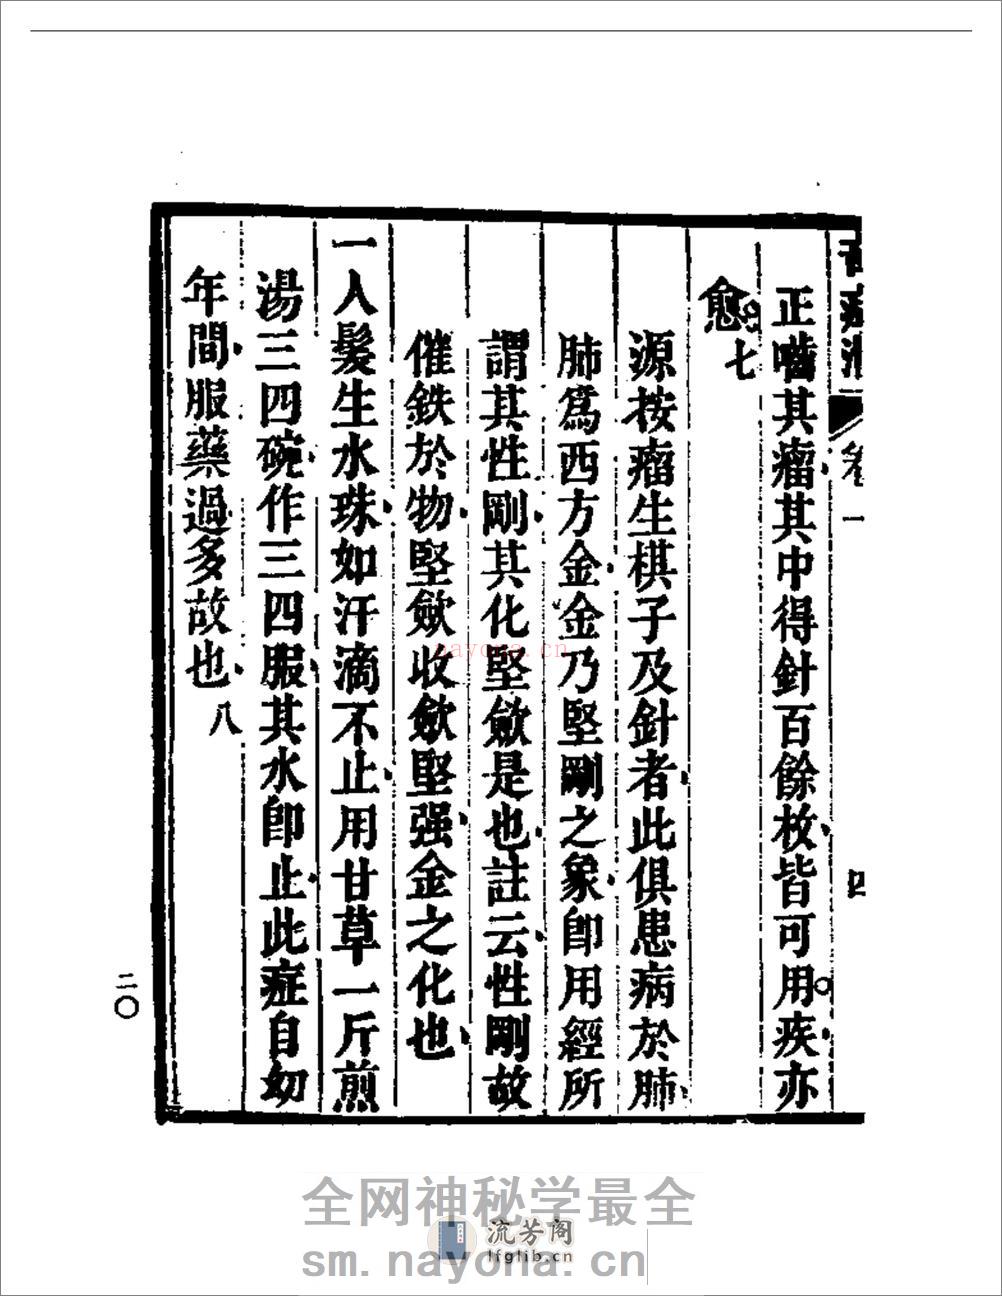 奇症滙
卷一
四
正嚙其瘤其中得針百餘枚皆可用疾亦
愈七
源按瘤生棋子及針者此俱患病於肺
肺爲西方金金乃堅剛之象卽用經所
謂其性剛其化堅歛是也註云性剛故
催鉄於物堅歛收歛堅强金之化也
一人髮生水珠如汗滴不止用甘草一斤煎
湯三四碗作三四服其水卽止此症自幼
年間服藥過多故也八
二〇
nayona.cn
全网神秘学最全
流芳阁
lfglib.cn
sm.nayona.cn